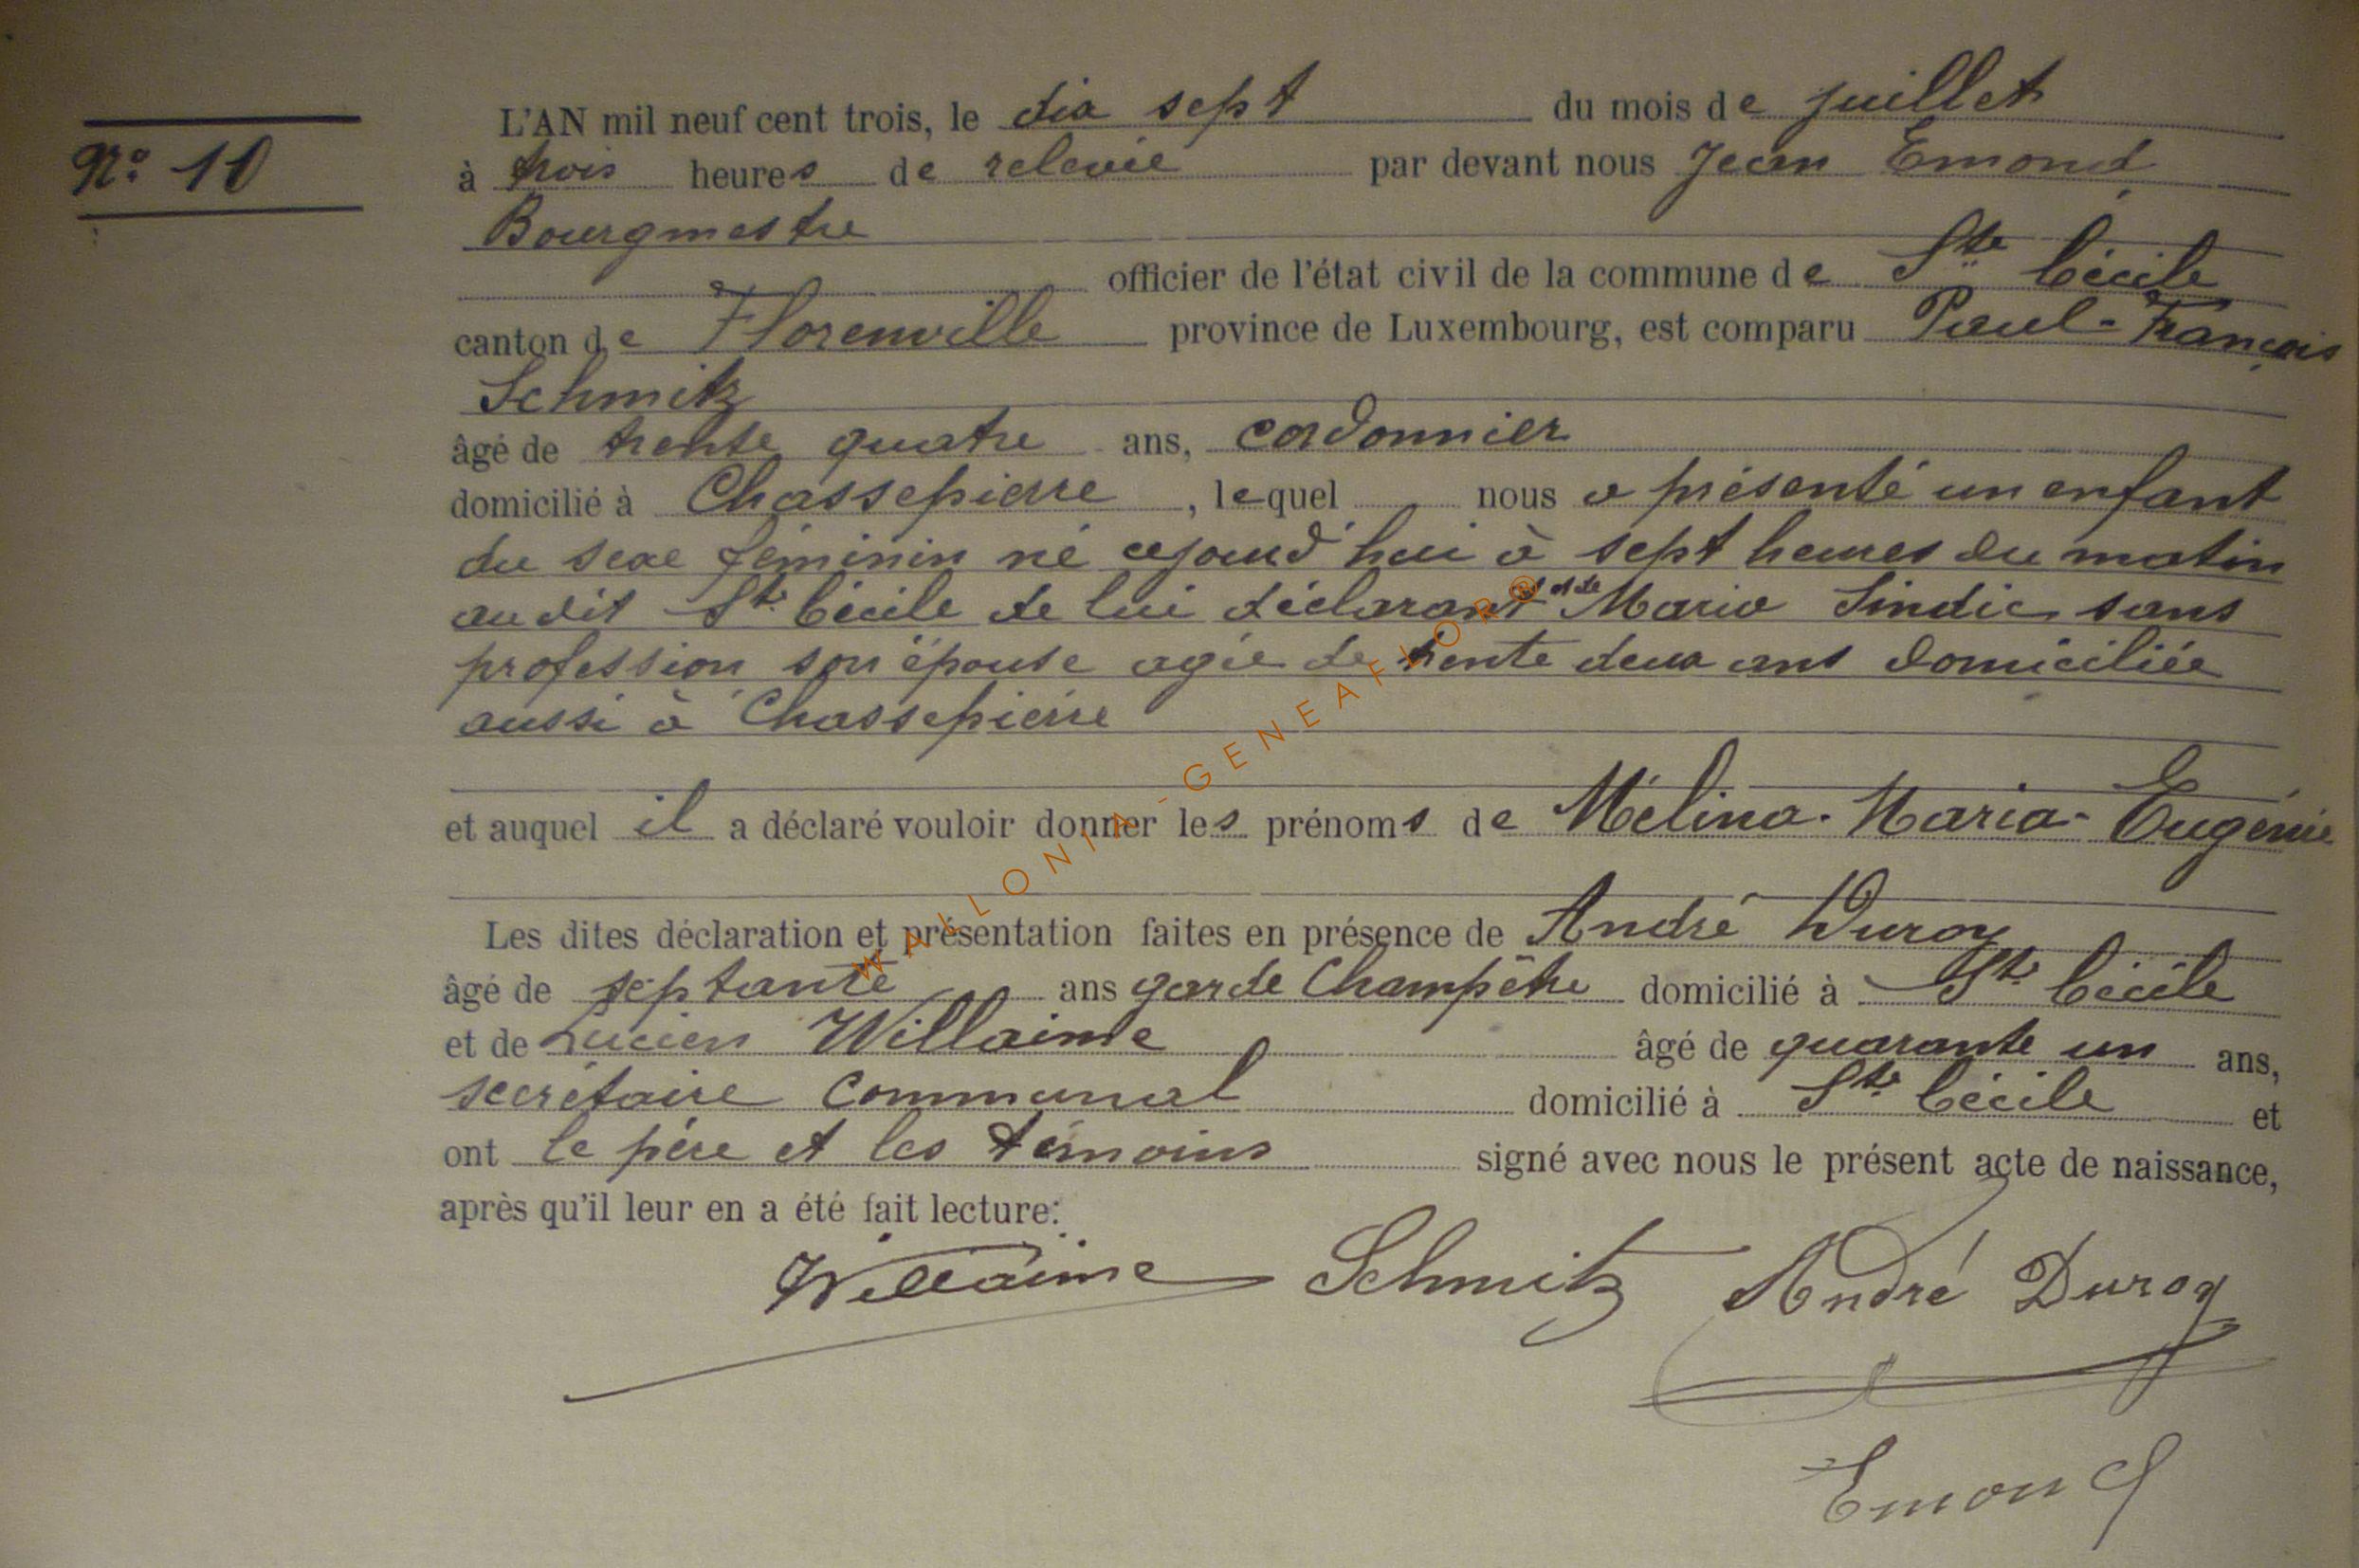 L'AN mil neuf cent trois, le dix sept du mois de juillet
N° 10
à trois heures de relevée par devant nous Jean Emond,
Bourgmestre
officier de l'état civil de la commune de Ste Cécile
canton de Florenville province de Luxembourg, est comparu Paul-François
Schmitz
âgé de trente quatre ans, cordonnier
domicilié à Chassepierre, lequel nous a présenté un enfant
du sexe féminin né cejourd'hui à sept heures du matin
audit Ste Cécile de lui déclarant et de Maria Sindic sans
profession son épouse agée de trente deux ans domiciliée
aussi à Chassepierre
et auquel il a déclaré vouloir donner les prénoms de Mélina-Maria-Eugénie
Les dites déclaration et présentation faites en présence de André Duroy
âgé de septante ans garde Champêtre domicilié à Ste Cécile
et de Lucien Willaime âgé de quarante un ans,
secrétaire communal domicilié à Ste Cécile et
ont le père et les témoins signé avec nous le présent acte de naissance,
après qu'il leur en a été fait lecture:
Willaime Schmitz André Duroy
Emond
WALLONIA-GENEAFLOR®